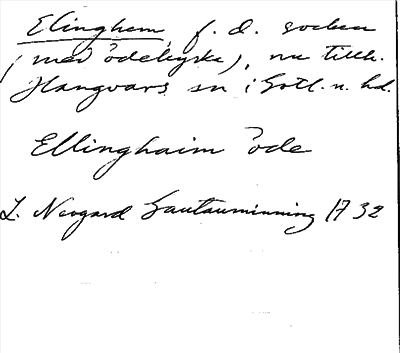 Elinghem, f. d. socken
(med ödekyrka), nu tillh.
Hangvars sn i Gotl. n. hd.
Ellinghaim öde
L. Neogard Gautauminning 1732